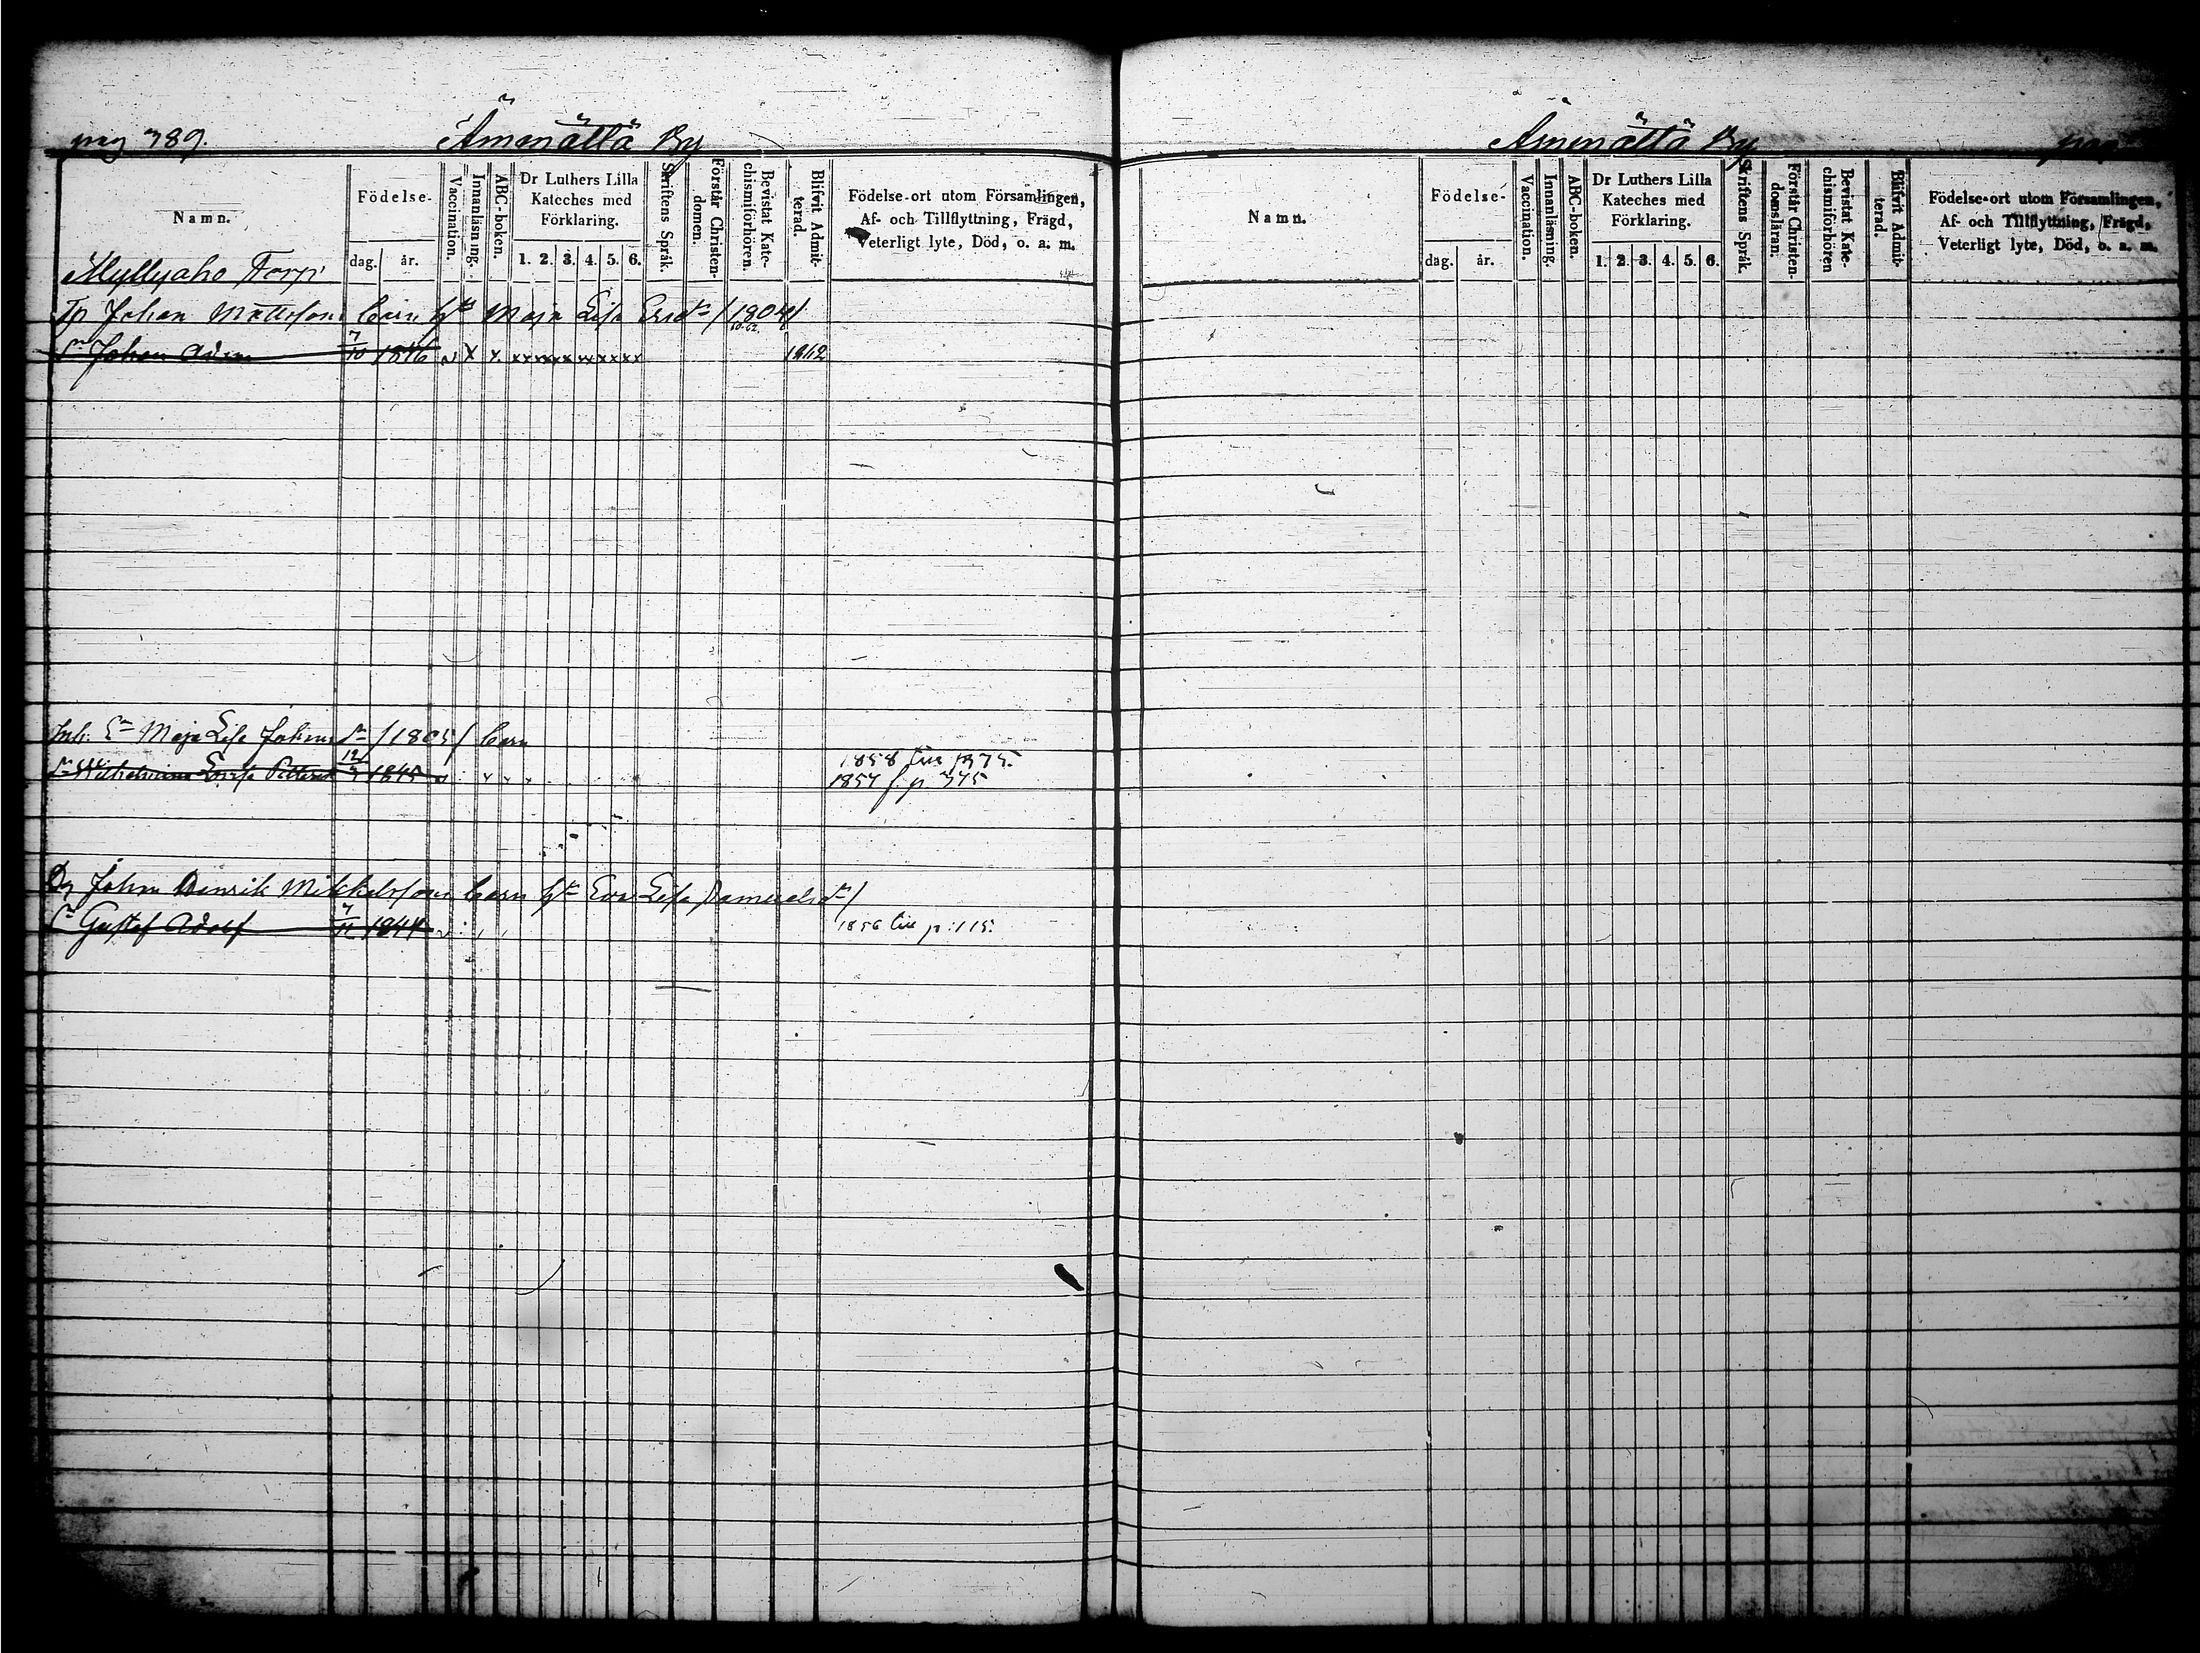 pag 789.
Ämmättä By
Namn.
Födelse-
dag.
år.
Vaccination.
Innanläsning.
ABC-boken.
Dr Luthers Lilla
Kateches med
Förklaring.
1. 2. 3. 4. 5. 6.
Skriftens Språk.
Förstår Christen-
domen.
Bevistat Kate-
chismiförhören.
Blifvit Admit-
terad.
Födelse-ort utom Församlingen,
Af- och Tillflyttning, Frägd,
Veterligt lyte, Död, o. a. m.
Myllyaho Torp
Tp Johan Mattssons barn h. Maja Lisa Ersd. /1804/
60-62.
Sn Johan Adam 7/10 1846 v x x. xx xx xx xx xx xx 1862
Inh. Maja Lisa Johans d. /1805/ barn
1858 till 1375.
Wilhelmina Lovisa 12/3 1845 v
1857 f. p. 375
Dg Johan Henrik Mikkelssons barn h. Eva Lisa Samuelsd. /
Sn Gustaf Adolf 7/11 1844 v
1856 till p. 115.
Ämmättä By
pag
Namn.
Födelse-
dag.
år.
Vaccination.
Innanläsning.
ABC-boken.
Dr Luthers Lilla
Kateches med
Förklaring.
1. 2. 3. 4. 5. 6.
Skriftens Språk.
Förstår Christen-
domsläran.
Bevistat Kate-
chismiförhören
Blifvit Admit-
terad.
Födelse-ort utom Församlingen,
Af- och Tillflyttning, Frägd,
Veterligt lyte, Död, o. a. m.